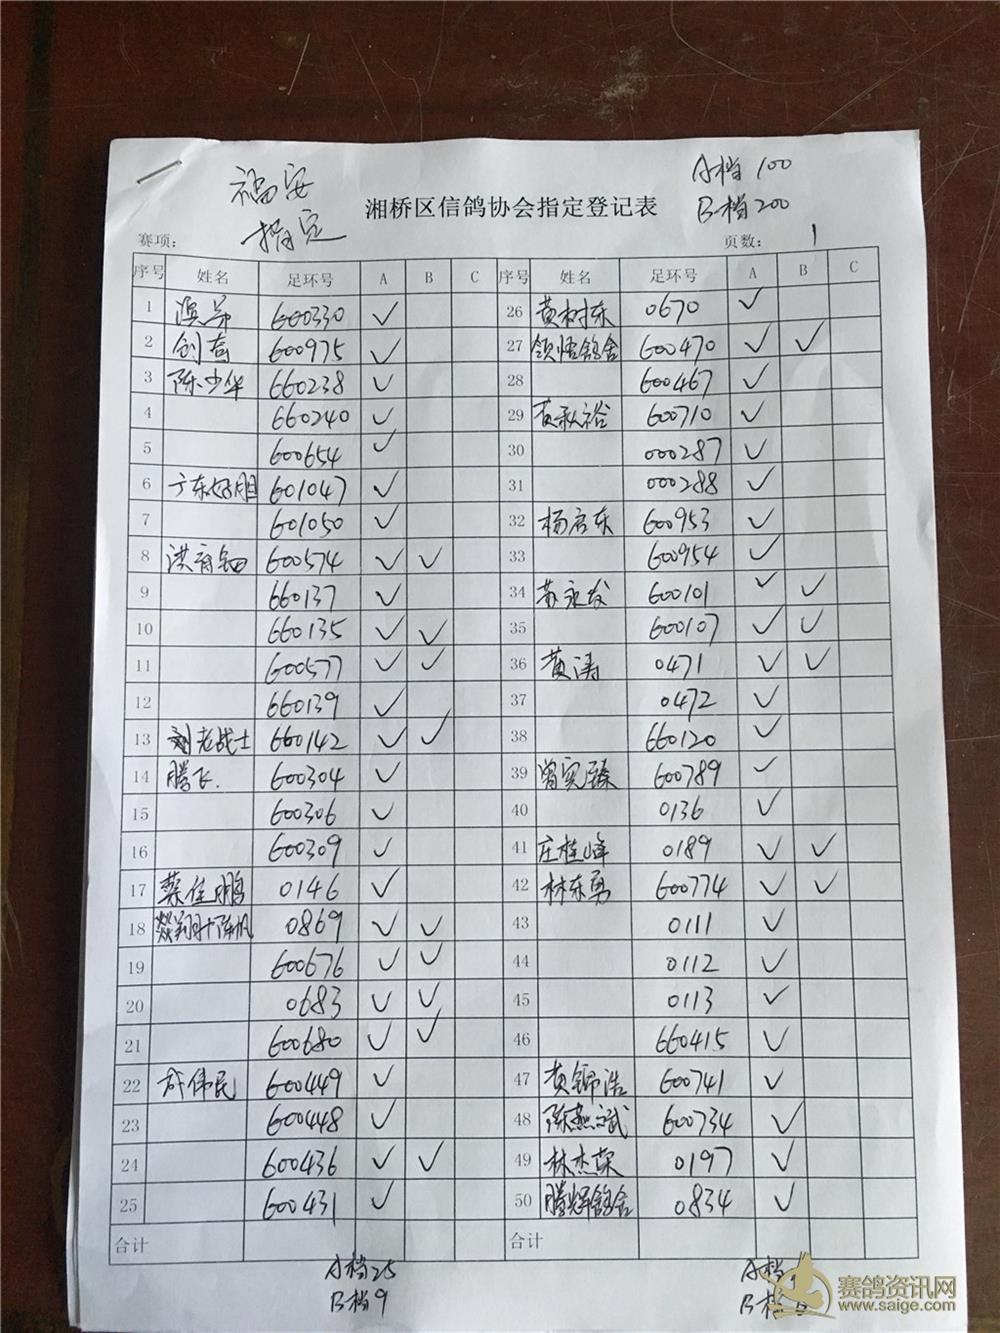 福安
指定
A档 100
B档 200
湘桥区信鸽协会指定登记表
赛项:
页数: 1
序号 姓名 足环号 A B C 序号 姓名 足环号 A B C
1 600330 ✓ 26 黄树东 0670 ✓
2 创高 600975 ✓ 27 领悟鸽舍 600470 ✓ ✓
3 陈少华 660238 ✓ 28 600467 ✓
4 660240 ✓ 29 黄秋裕 600710 ✓
5 600654 ✓ 30 000287 ✓
6 广东好胆 601047 ✓ 31 000288 ✓
7 601050 ✓ 32 杨启东 600953 ✓
8 洪育钿 600574 ✓ ✓ 33 600954 ✓
9 660137 ✓ 34 苏永发 600101 ✓ ✓
10 660135 ✓ ✓ 35 600107 ✓ ✓
11 600577 ✓ ✓ 36 黄涛 0471 ✓ ✓
12 660139 ✓ 37 0472 ✓
13 刘老战士 660142 ✓ ✓ 38 660120 ✓
14 腾飞. 600304 ✓ 39 曾宪臻 600789 ✓
15 600306 ✓ 40 0136 ✓
16 600309 ✓ 41 庄桂峰 0189 ✓ ✓
17 蔡佳鹏 0146 ✓ 42 林东勇 600774 ✓ ✓
18 翔+陈帆 0869 ✓ ✓ 43 0111 ✓
19 600676 ✓ ✓ 44 0112 ✓
20 0683 ✓ ✓ 45 0113 ✓
21 600680 ✓ ✓ 46 660415 ✓
22 许伟民 600449 ✓ 47 黄锦浩 600741 ✓
23 600448 ✓ 48 陈燕斌 600734 ✓
24 600436 ✓ ✓ 49 林杰荣 0197 ✓
25 600431 ✓ 50 腾辉鸽舍 0834 ✓
合计 合计
A档25 A档
B档9 B档
赛鸽资讯网
www.saige.com